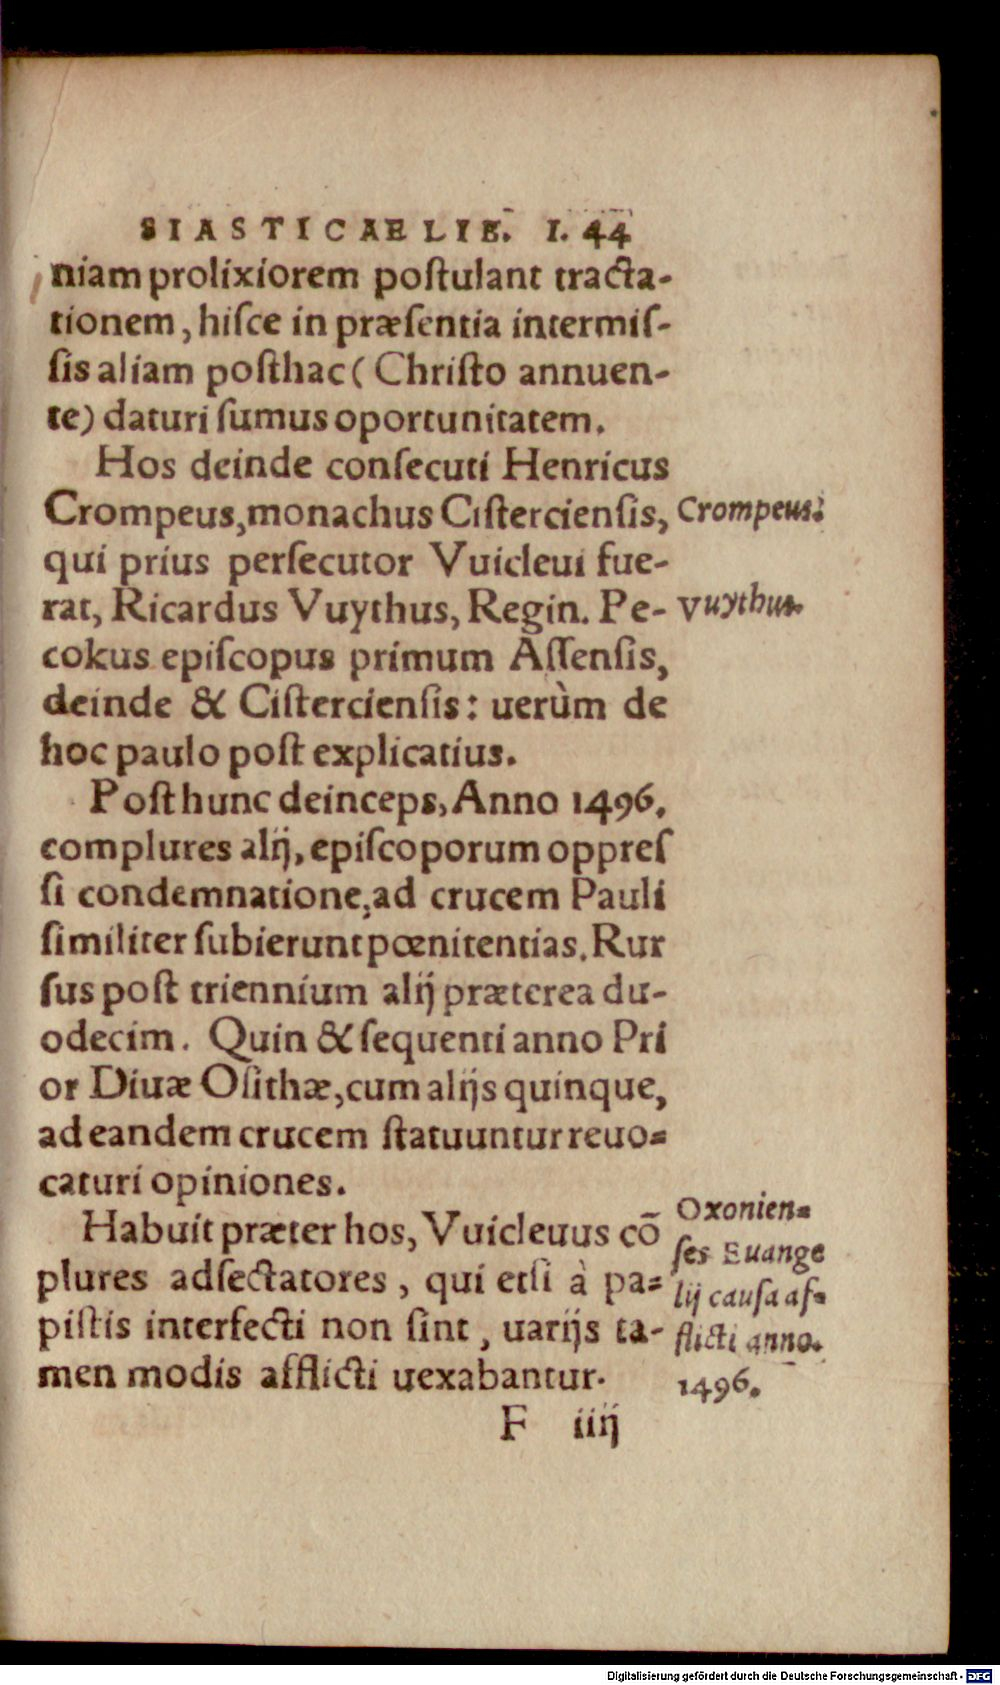 SIASTICAE LIB. I. 44
niam prolixiorem poſtulant tracta-
tionem, hiſce in præſentia intermiſ-
ſis aliam poſthac ( Chriſto annuen-
te) daturi ſumus oportunitatem.
Hos deinde conſecuti Henricus
Crompeus, monachus Ciſtercienſis,
Crompeus.
qui prius perſecutor Vuicleui fue-
rat, Ricardus Vuythus, Regin. Pe-
Vuythus.
cokus epiſcopus primum Aſſenſis,
deinde & Ciſtercienſis: uerùm de
hoc paulo poſt explicatius.
Poſt hunc deinceps, Anno 1496.
complures alij, epiſcoporum oppreſ
ſi condemnatione, ad crucem Pauli
ſimiliter ſubierunt pœnitentias. Rur
ſus poſt triennium alij præterea du-
odecim. Quin & ſequenti anno Pri
or Diuæ Oſithæ, cum alijs quinque,
ad eandem crucem ſtatuuntur reuo-
caturi opiniones.
Habuit præter hos, Vuicleuus cō
plures adſectatores, qui etſi à pa-
piſtis interfecti non ſint, uarijs ta-
men modis afflicti uexabantur.
Oxonien-
ſes Euange
lij cauſa aſ-
flicti anno.
1496.
F iiij
Digitalisierung gefördert durch die Deutsche Forschungsgemeinschaft - DFG